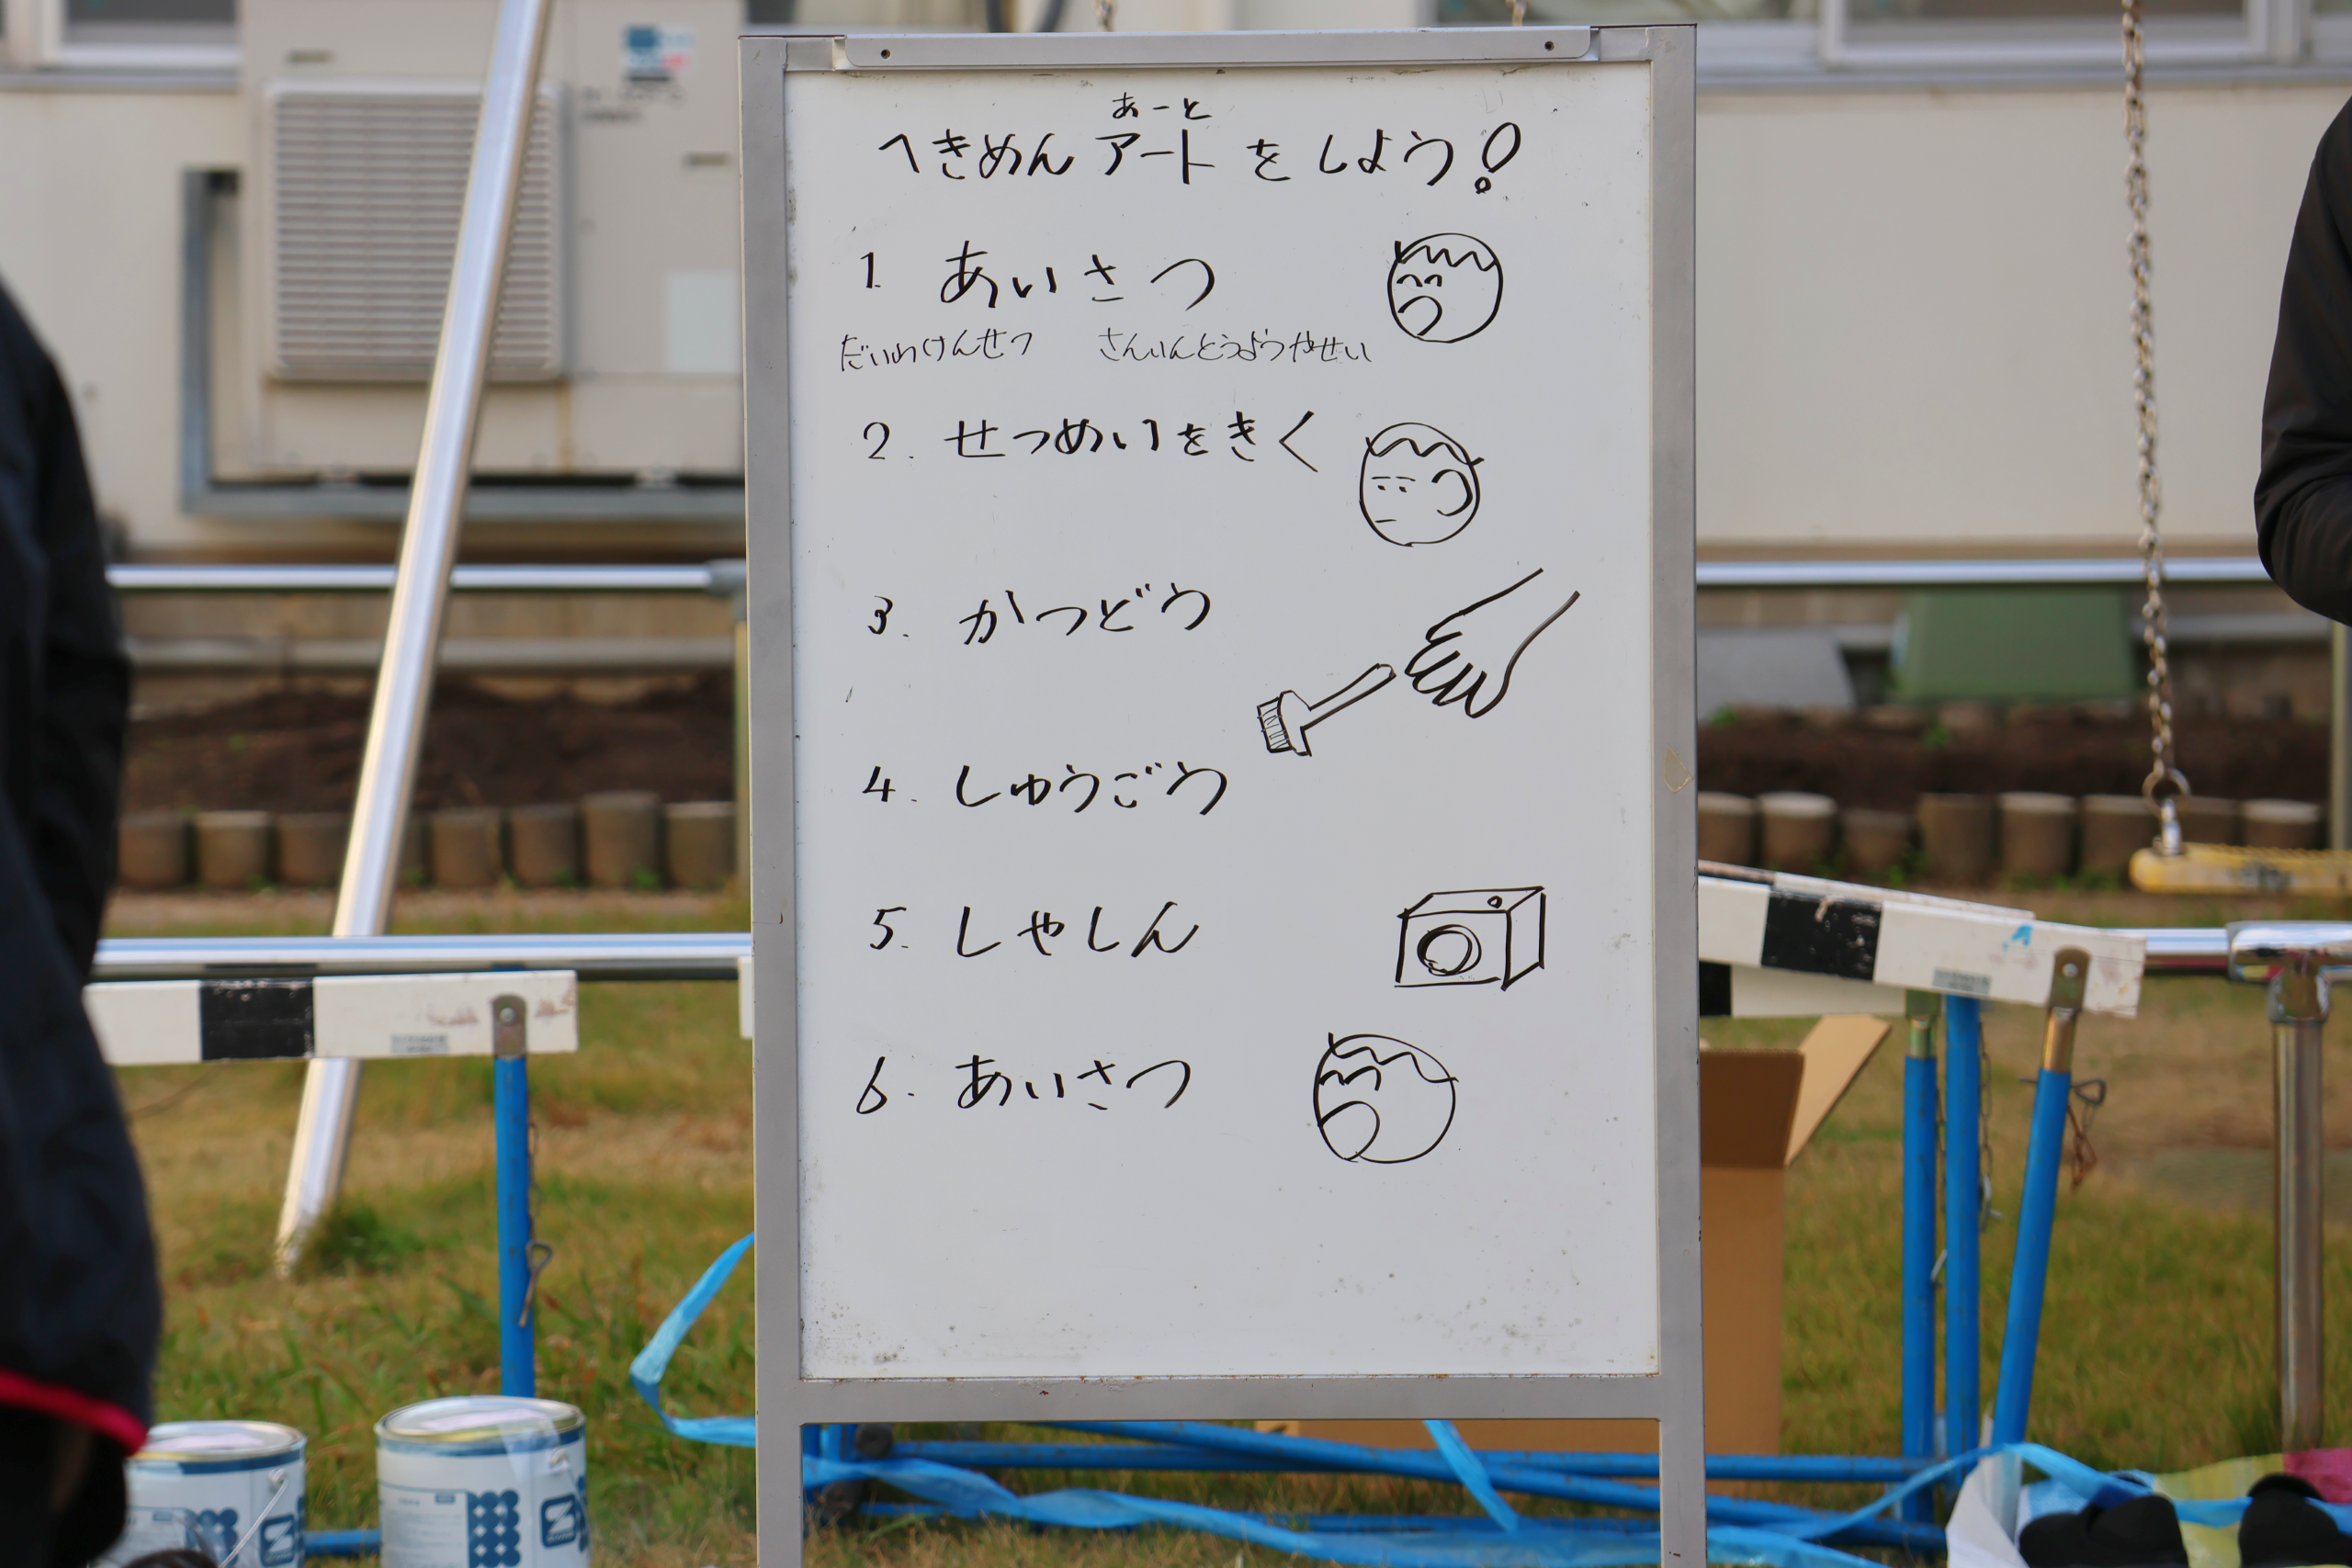 あーと
へきめんアートをしよう!
1. あいさつ
だいわけんせつ さんいんとうようやせい
2. せつめいをきく
3. かつどう
4. しゅうごう
5. しゃしん
6. あいさつ